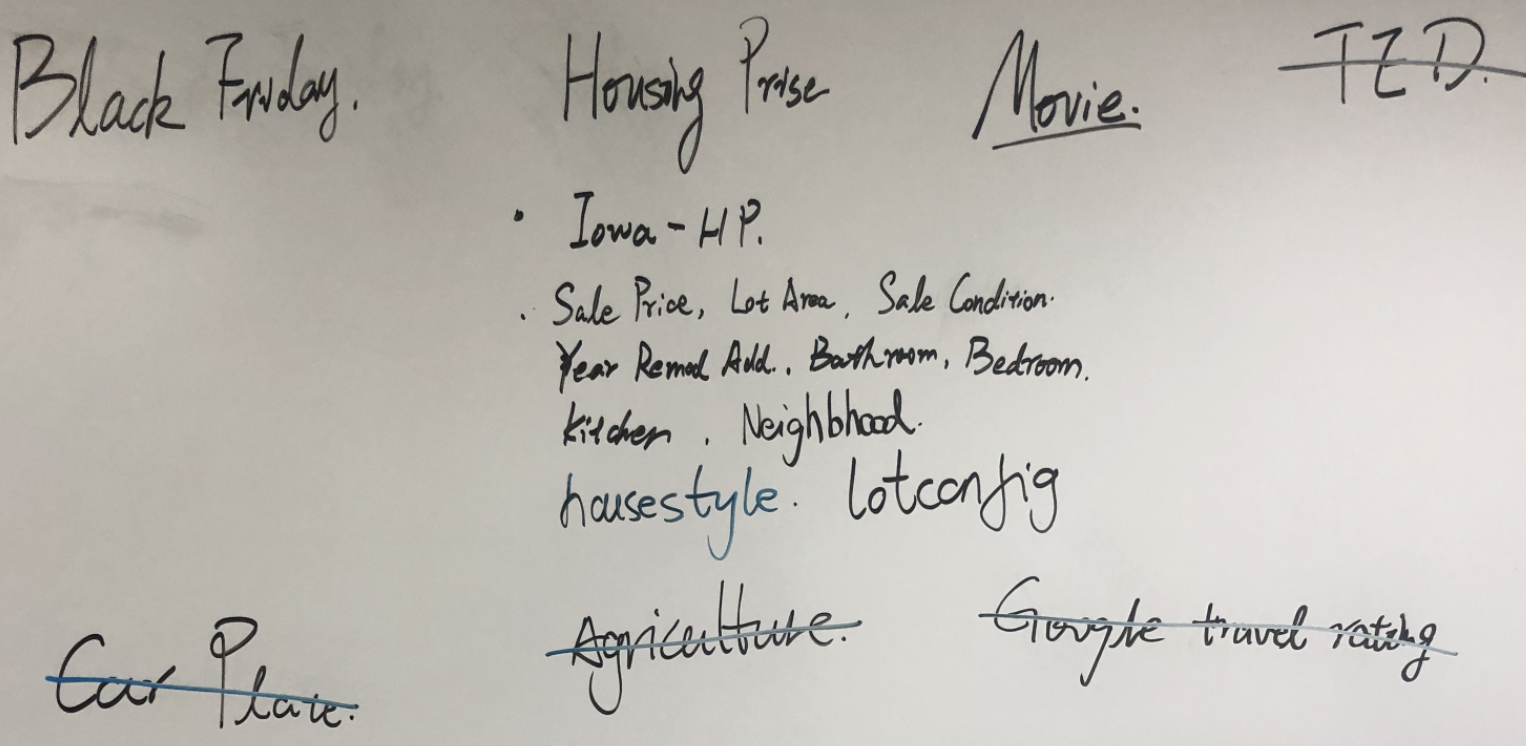 Black Friday.
Housing Prise
Movie.
TED.
· Iowa - HP.
· Sale Price, Lot Area, Sale Condition.
Year Remod Add., Bathroom, Bedroom.
Kitchen, Neighbhood.
housestyle. lotconfig
Car Plate.
Agriculture.
Google travel rating